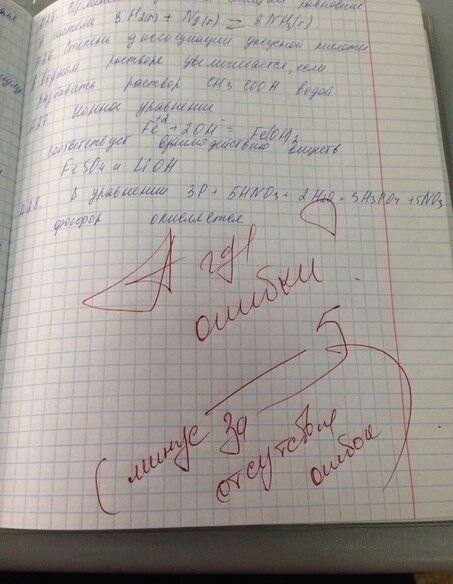 системе 3H2(г) + N2(г) = 2NH3(г).
A26 Степень диссоциации уксусной кислоты
в водном растворе увеличивается, если
разбавить раствор CH3COOH водой
A27 Ионное уравнение
Fe+2 + 2OH- = Fe(OH)2
соответствует взаимодействию веществ
FeSO4 и LiOH
A28 В уравнении 3P + 5HNO3 + 2H2O = 3H3PO4 + 5NO
фосфор окисляется
А где
ошибки
5-
(минус за
отсутствие
ошибок